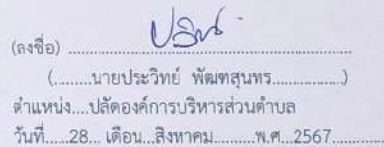 (ลงชื่อ) ........................................................
(.........นายประวิทย์ พัฒฑสุนทร.................)
ตำแหน่ง....ปลัดองค์การบริหารส่วนตำบล
วันที่.....28... เดือน...สิงหาคม.........พ.ศ...2567.............